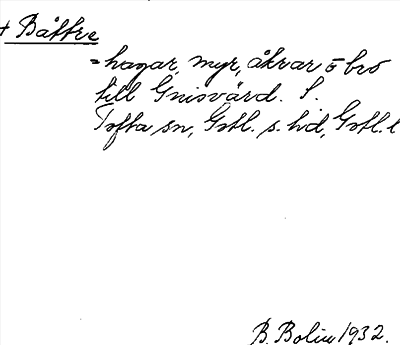 + Båttre
= hagar, myr, åkrar o bro
till Gnisvärd. S.
Tofta sn, Gotl. s. hd, Gotl. l
B. Bolin 1932.